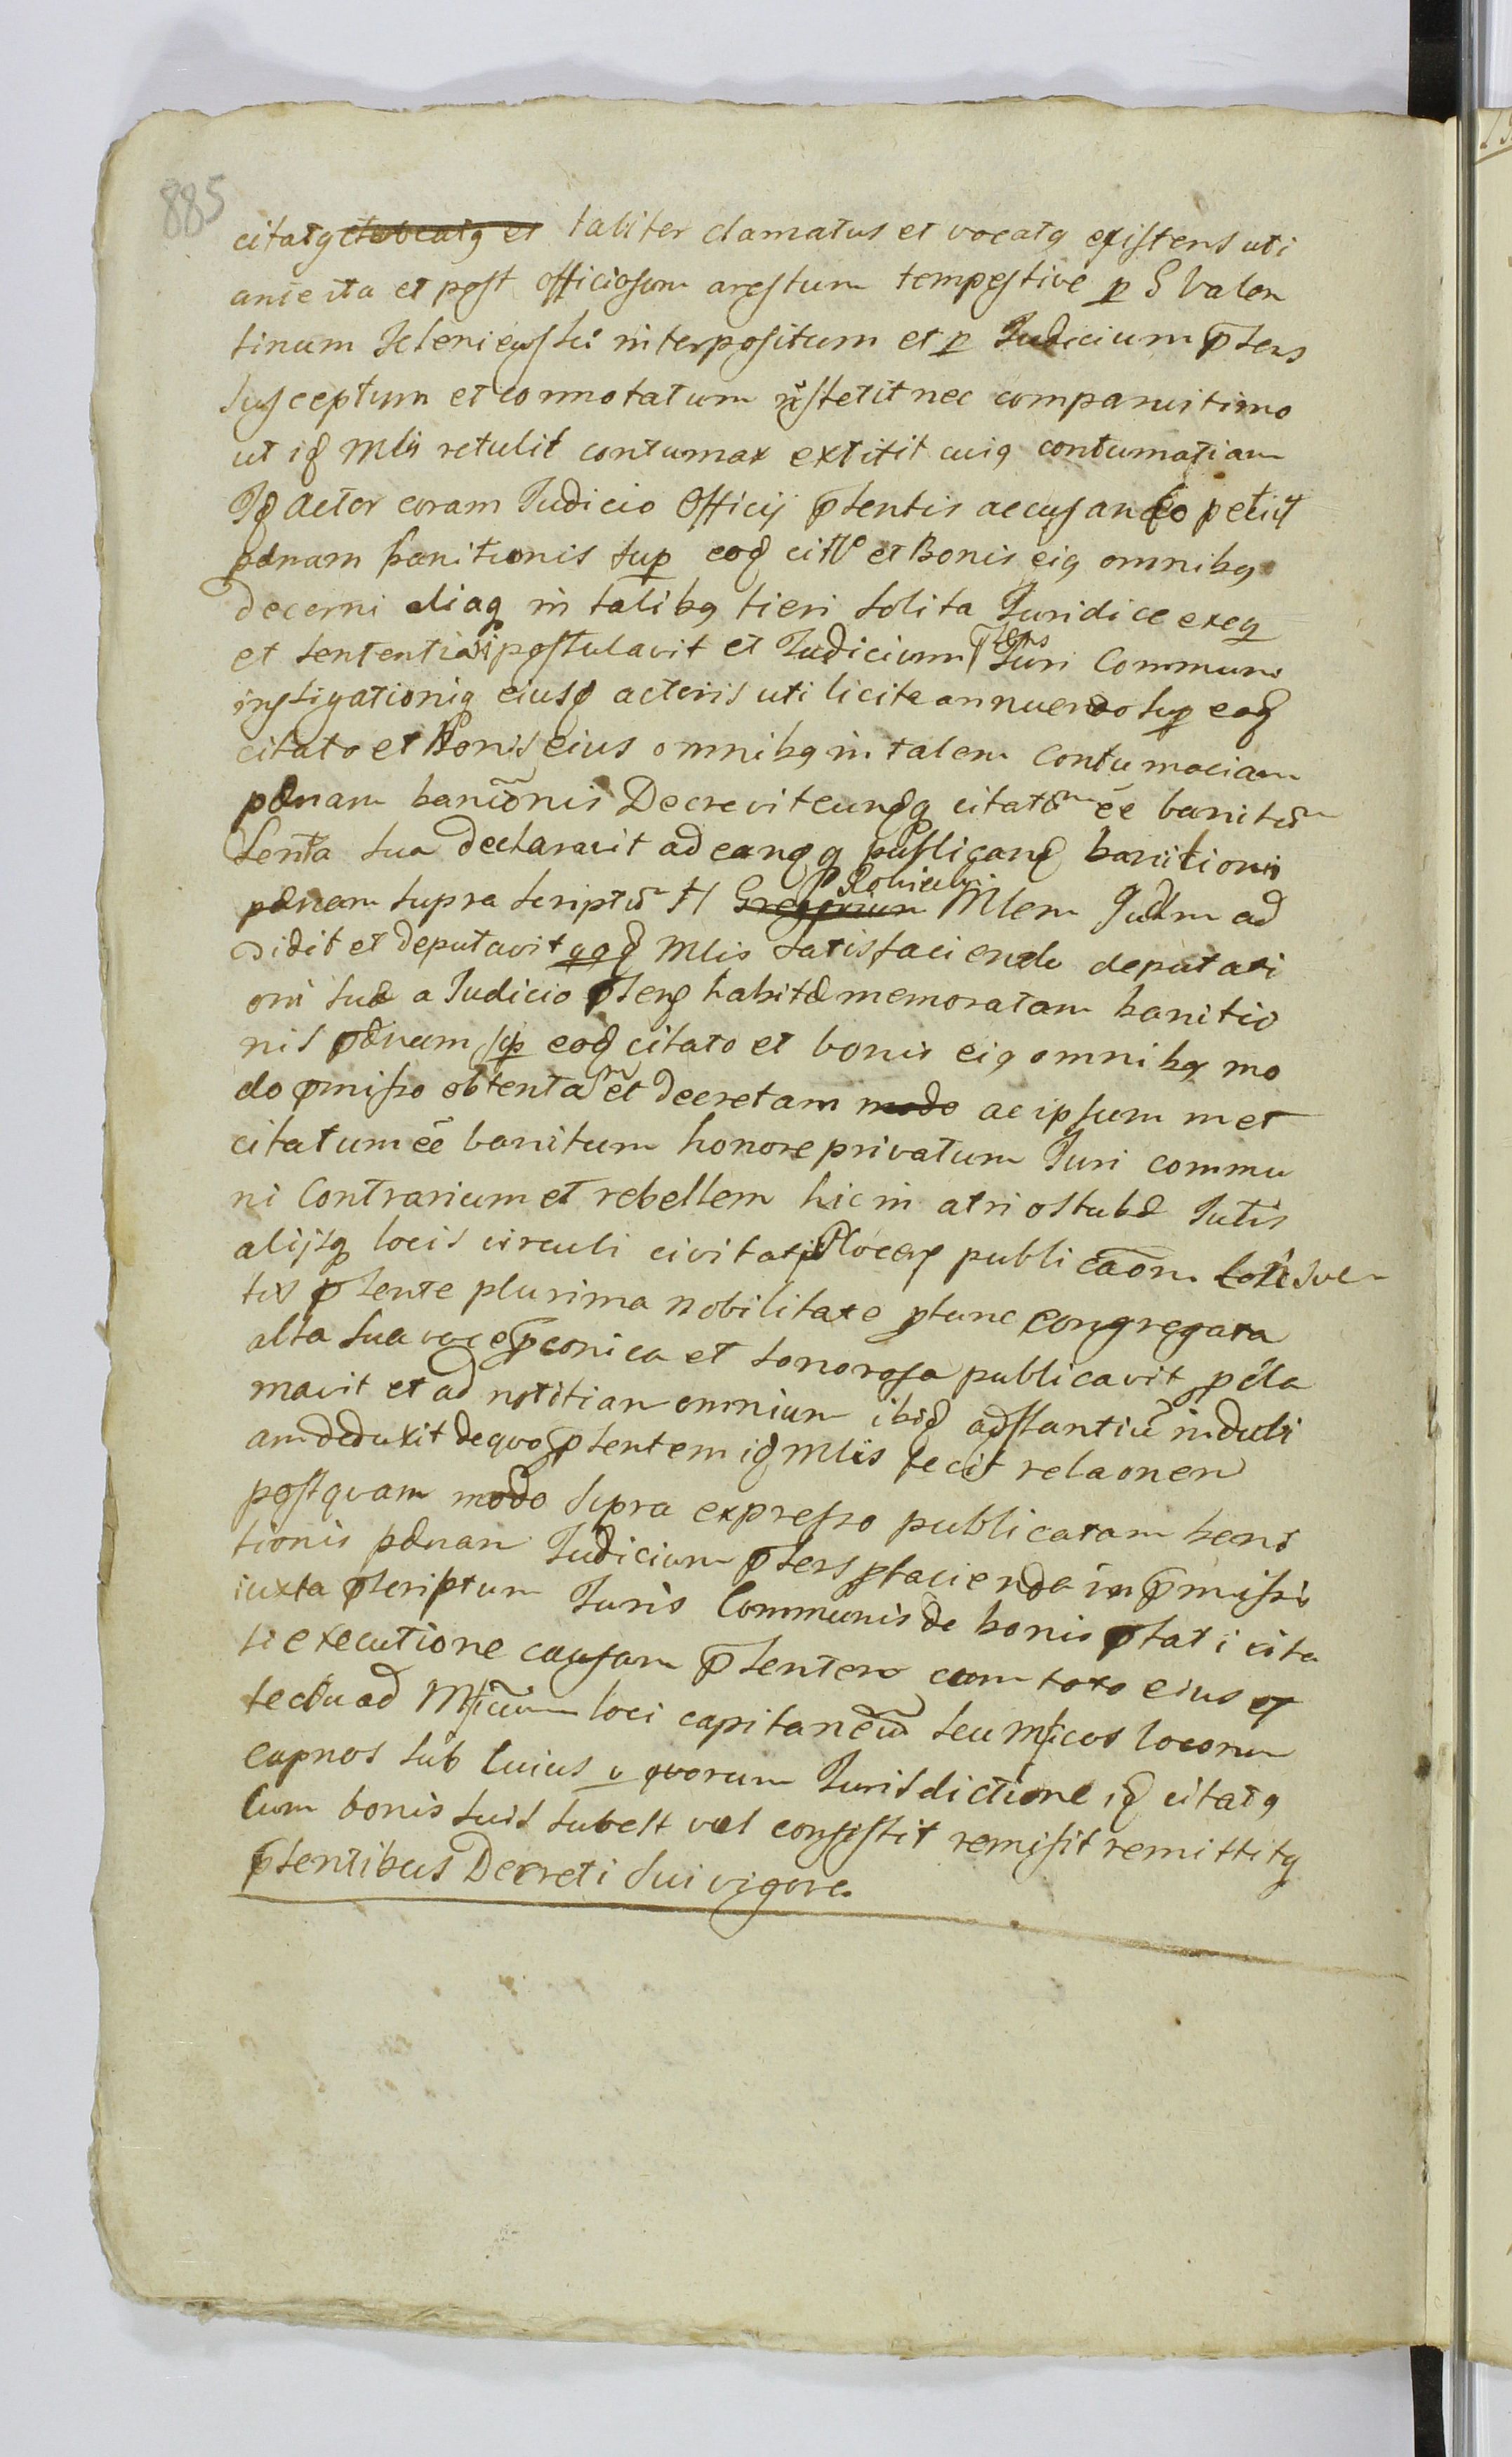 885
citatq taliter clamatus et vocatq existens uti
ante ita et post officiosum arestum tempestive p S Valen
tinum interpositum et p Judicium p̄sens
susceptum et connotatum ñ stetit nec comparuit imo
ut idꝫ Mlis retulit contumax extitit cuiq contumatiam
Idꝫ Actor coram Judicio Officij p̄sentis accusando petiit
pœnam banitionis sup eodꝫ citto et Bonis eiq omnibq
decerni aliaq in talibq fieri solita Juridice exeq
et sententiari postulavit et Judicium p̄sens Juri Communi
instigationiq eiusdꝫ actoris uti licite annuendo sup eodꝫ
citato et Bonis eius omnibq in talem contumaciam
pœnam baniōnis Decrevit eundꝫq citatū ēe banitū
Sentā sua declaravit ad eandꝫq publicandꝫ banitionis
pœnam supra scriptū H Gregorium Mlem Judm ad
didit et deputavit Mlis satisfaciendo deputati
oni suæ a Judicio p̄senꝫ habitæ memoratam banitio
nis pœnam sup eodꝫ citato et bonis eiq omnibq mo
do p̄misso obtentam et decretam modo ac ipsum met
citatum ēe banitum honore privatum Juri commu
ni Contrarium et rebellem hic in atrio stubæ Judis
alijsq locis circuli civitatis Plocen publicaōm
tis p̄sente plurima nobilitate ptunc congregata
alta sua voce p̄conica et sonorosa publicavit p̄cla
mavit et ad notitiam omnium ibidꝫ adstantiū indubi
am deduxit de quo p̄sentem idꝫ Mlis fecit relaōnem
postquam modo supra expresso publicatam bani
tionis pœnam Judicium p̄sens sfaciendo in p̄missis
iuxta p̄scriptum Juris Communis de bonis p̄fati cita
ti executione causam p̄sentem cum toto eius ef
fectu ad Mficum loci capitaneū seu Mficos locorum
capnos sub cuius v quorum Jurisdictione idꝫ citatq
cum bonis suis subest vel consistit remisit remittitq
p̄sentibus Decreti sui vigore.